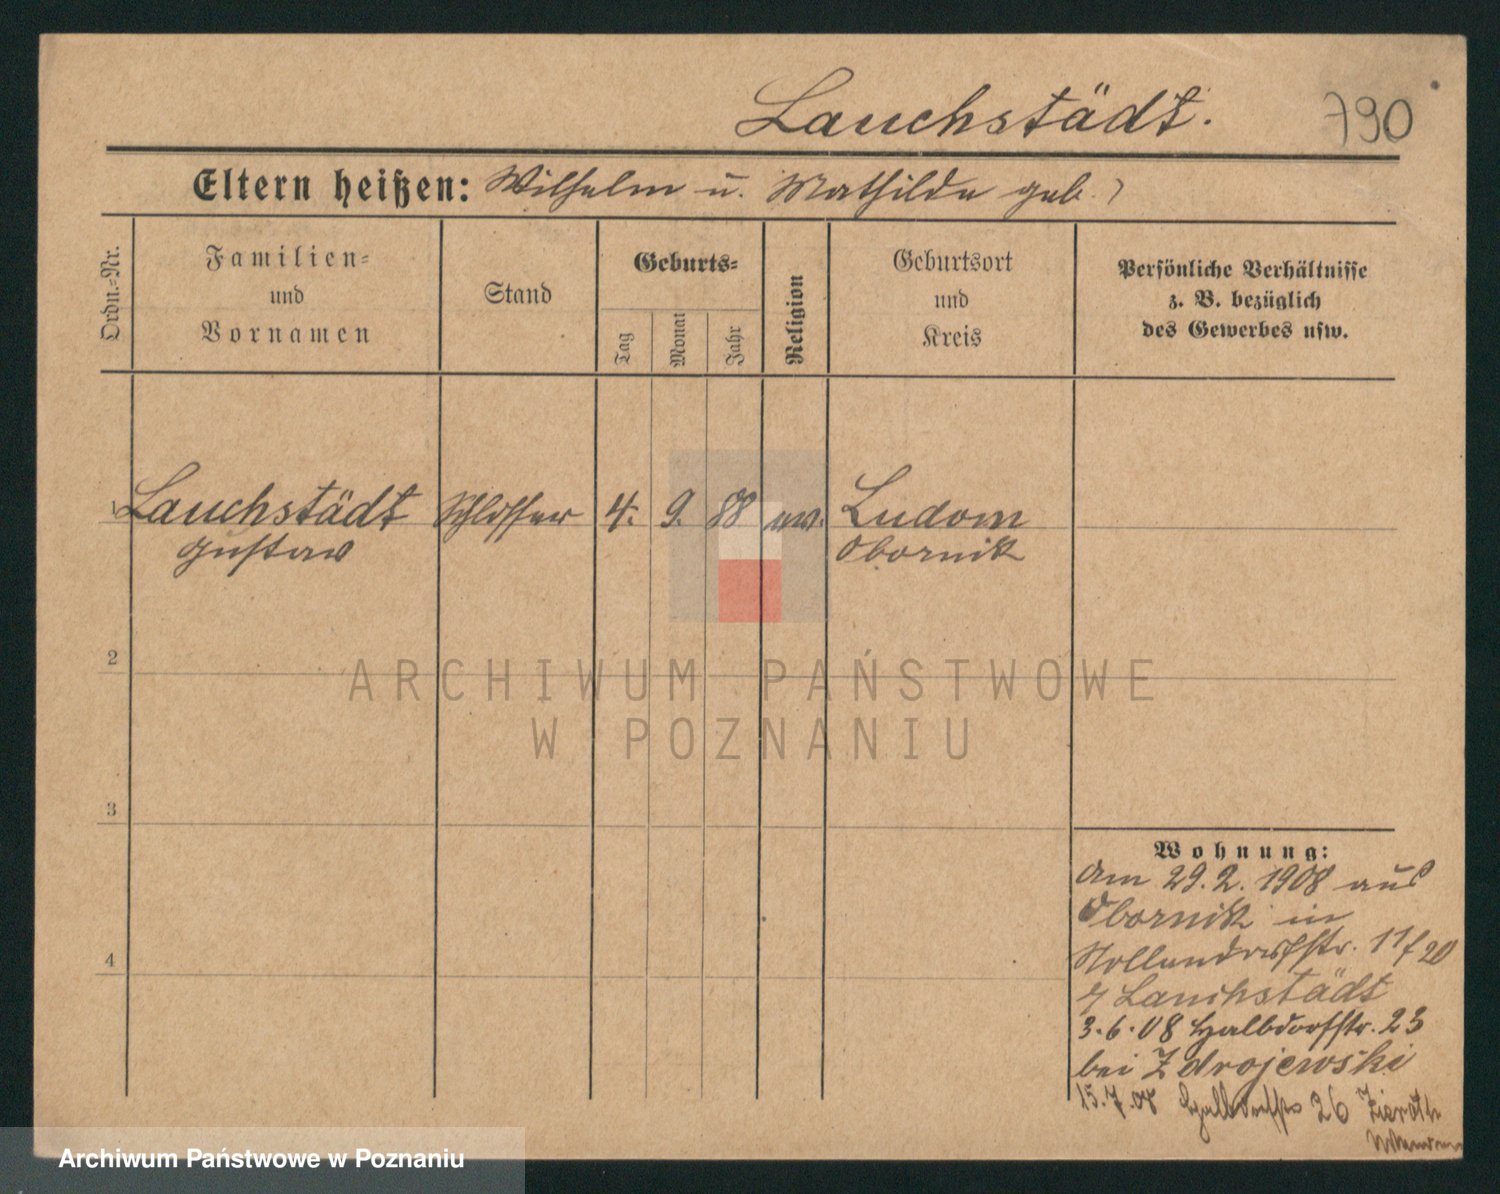 Lauchstädt.
790
Eltern heißen: Wilhelm u. Mathilde geb. ?
Ordn.-Nr.
Familien-
und
Vornamen
Stand
Geburts-
Tag
Monat
Jahr
Religion
Geburtsort
und
Kreis
Persönliche Verhältnisse
z. B. bezüglich
des Gewerbes usw.
1 Lauchstädt Schlosser 4. 9. 88 ev. Ludom
Gustav Obornik
2
ARCHIWUM PAŃSTWOWE
W POZNANIU
3
Wohnung:
Am 29.2.1908 aus
Obornik in
11/20
Lauchstädt
3.6.08 Halbdorfstr. 23
bei Zdrojewski
4
15.7.08 Halbdorfstr 26
Archiwum Państwowe w Poznaniu